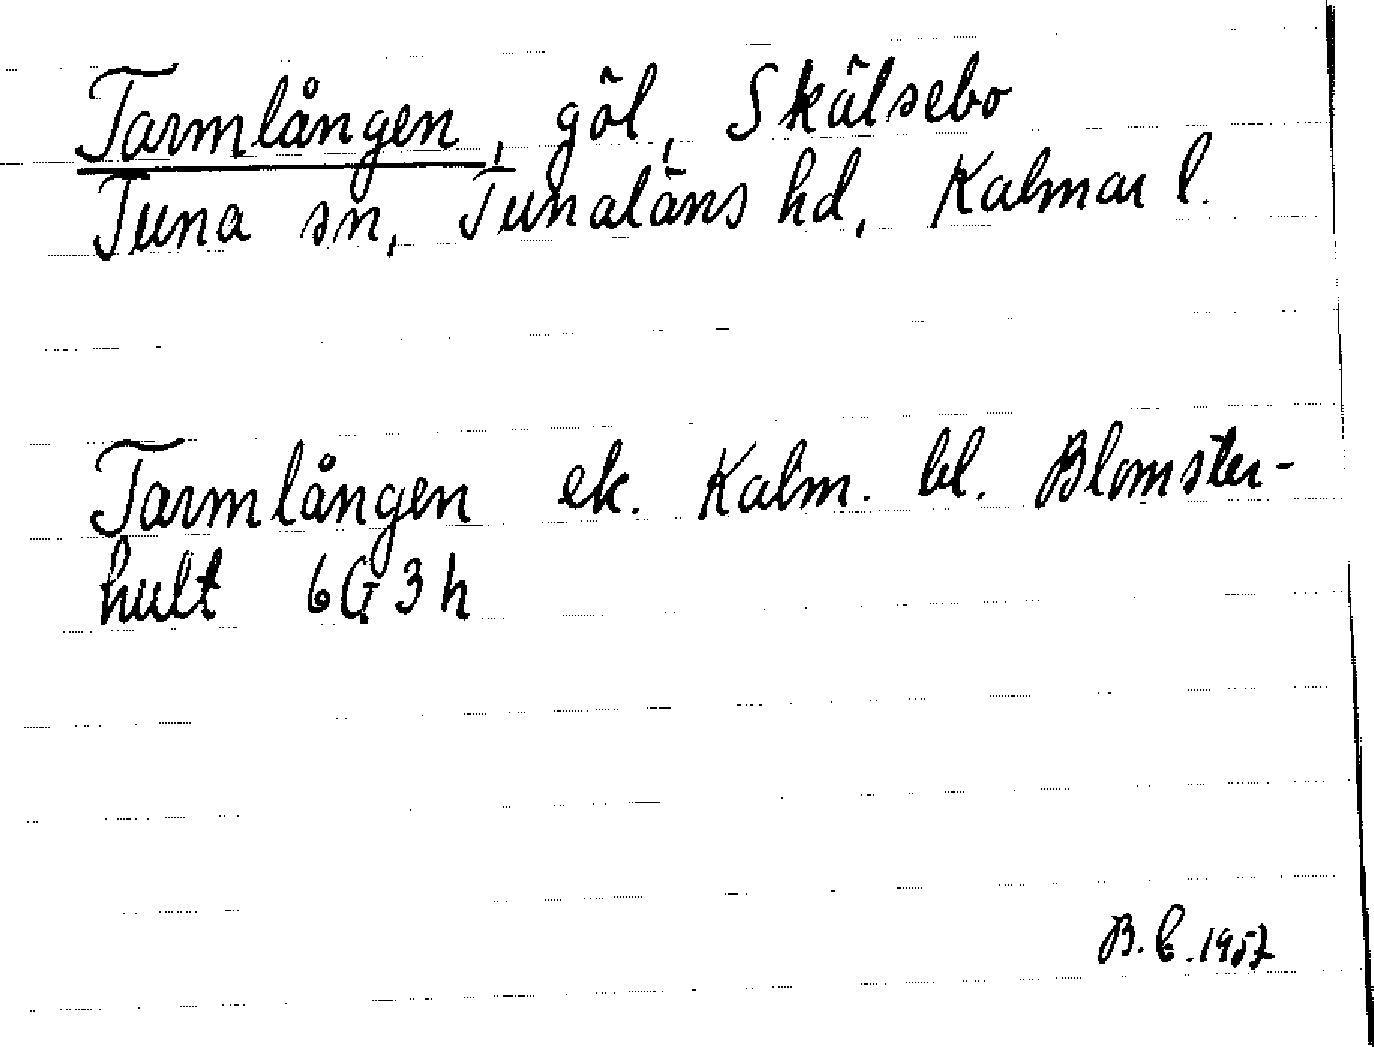 Tarmlången, göl, Skälsebo
Tuna sn, Tunaläns hd, Kalmar l.
Tarmlången ek. Kalm. bl. Blomster-
hult 6G3h
B. E. 1957